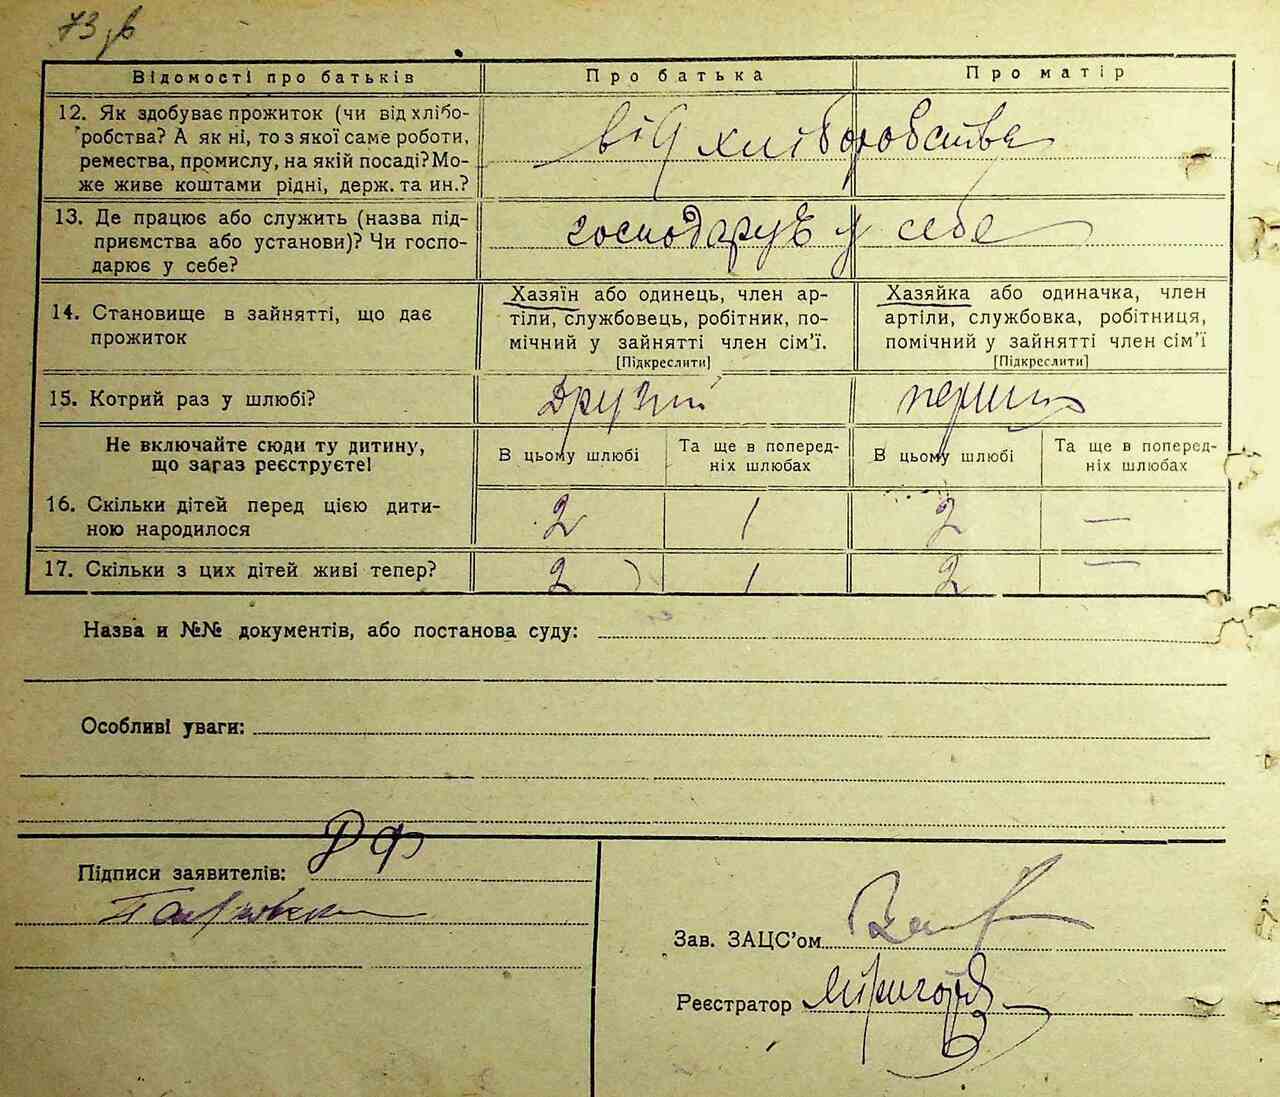 73 зв
Відомості про батьків Про батька Про матір
12. Як здобуває прожиток (чи від хлібо-
робства? А як ні, то з якої саме роботи,
ремества, промислу, на якій посаді? Мо-
же живе коштами рідні, держ. та ин.?
від хліборобства
13. Де працює або служить (назва під-
приємства або установи)? Чи госпо-
дарює у себе?
господарує у себе
14. Становище в зайнятті, що дає
прожиток
Хазяїн або одинець, член ар-
тіли, службовець, робітник, по-
мічний у зайнятті член сім'ї.
[Підкреслити]
Хазяйка або одиначка, член
артіли, службовка, робітниця,
помічний у зайнятті член сім'ї
[Підкреслити]
15. Котрий раз у шлюбі? другий перший
Не включайте сюди ту дитину,
що загаз реєструєте!
В цьому шлюбі
Та ще в поперед-
ніх шлюбах
В цьому шлюбі
Та ще в поперед-
ніх шлюбах
16. Скільки дітей перед цією дити-
ною народилося
2 1 2 —
17. Скільки з цих дітей живі тепер? 2 1 2 —
Назва и №№ документів, або постанова суду:
Особливі уваги:
Підписи заявителів:
Зав. ЗАЦС'ом
Реєстратор